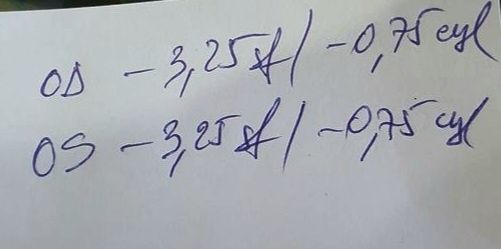 OD -3,25 sf / -0,75 cyl
OS -3,25 sf / -0,75 cyl